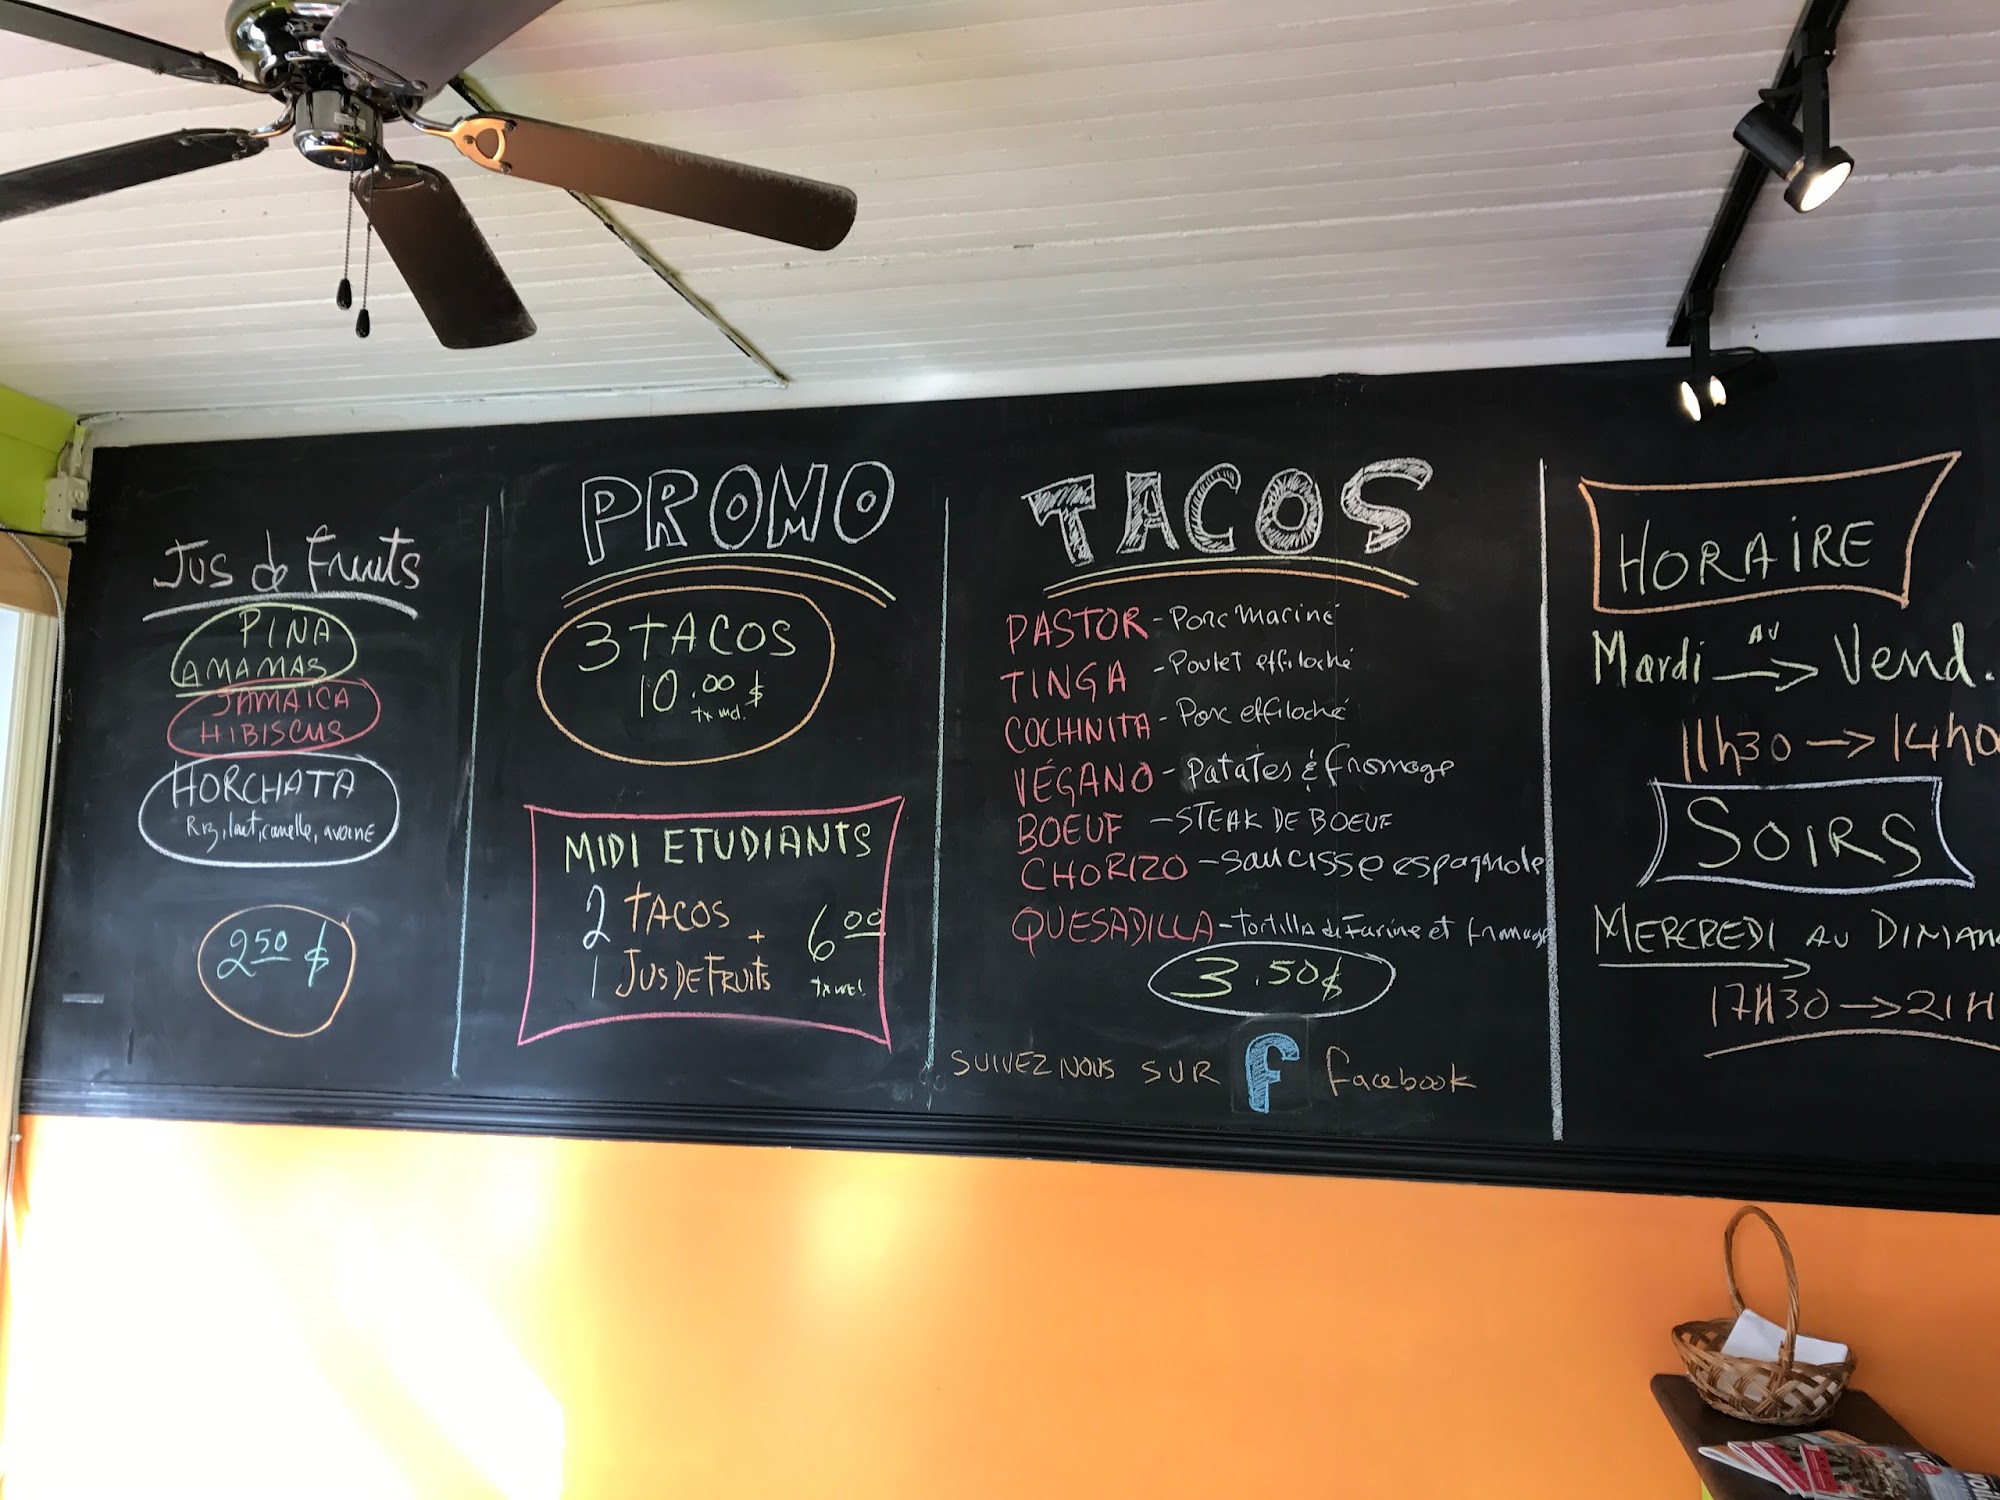 Jus de Fruits
PINA
AMAMAS
JAMAICA
HIBISCUS
HORCHATA
Riz, lait, canelle, avoine
2 50 $
PROMO
3 TACOS
10.00 $
tx incl.
MIDI ETUDIANTS
2 TACOS
+
1 JUS DE FRUITS
6 00
tx incl.
TACOS
PASTOR - Porc Mariné
TINGA - Poulet effiloché
COCHINITA - Porc effiloché
VÉGANO - Patates & fromage
BOEUF - STEAK DE BOEUF
CHORIZO - Saucisse espagnole
QUESADILLA - tortilla de Farine et fromage
3.50$
SUIVEZ NOUS SUR f facebook
HORAIRE
Mardi AU → Vend.
11h30 → 14h0
SOIRS
MERCREDI AU DIMAN
17H30 → 21H